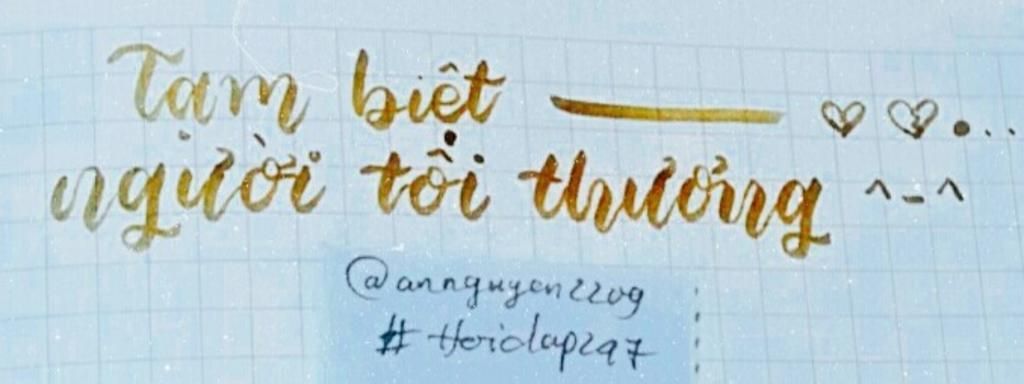 Tạm biệt — ♡ ♡ • . .
người tôi thương ^-^
@annguyen2209
#Hoidap247